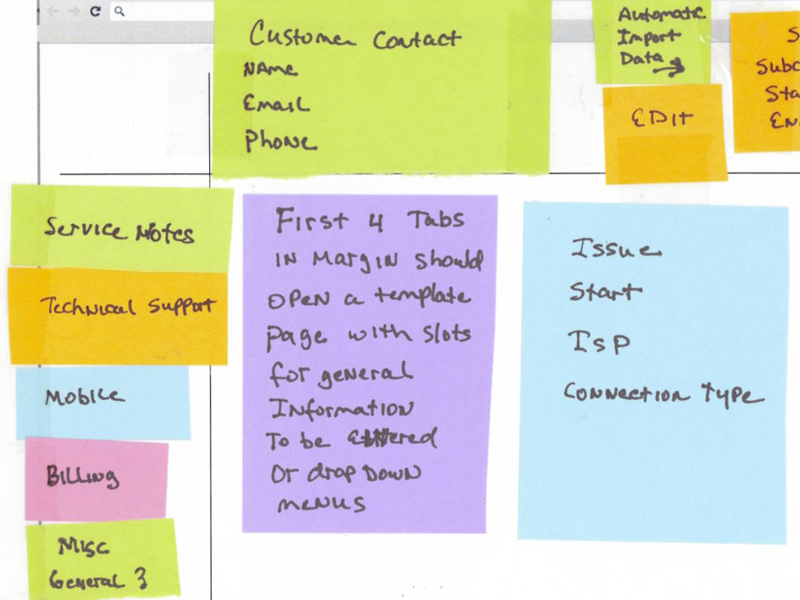 Customer Contact
Name
Email
Phone
Automatic
Import
Data →
EDIT
Service Notes
Technical Support
Mobile
Billing
Misc
General 3
First 4 Tabs
in Margin should
open a template
page with slots
for general
Information
To be entered
Or drop Down
menus
Issue
Start
Isp
Connection Type